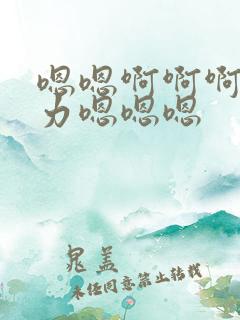 嗯嗯啊啊啊
力嗯嗯嗯
晁盖
未经同意禁止转载